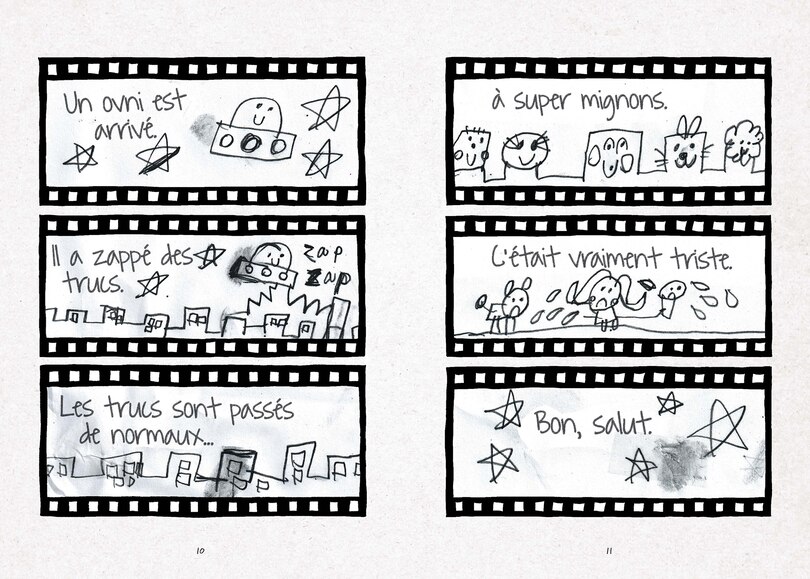 Un ovni est
arrivé.
Il a zappé des
trucs.
zap
zap
Les trucs sont passés
de normaux...
10
à super mignons.
C'était vraiment triste.
Bon, salut.
11